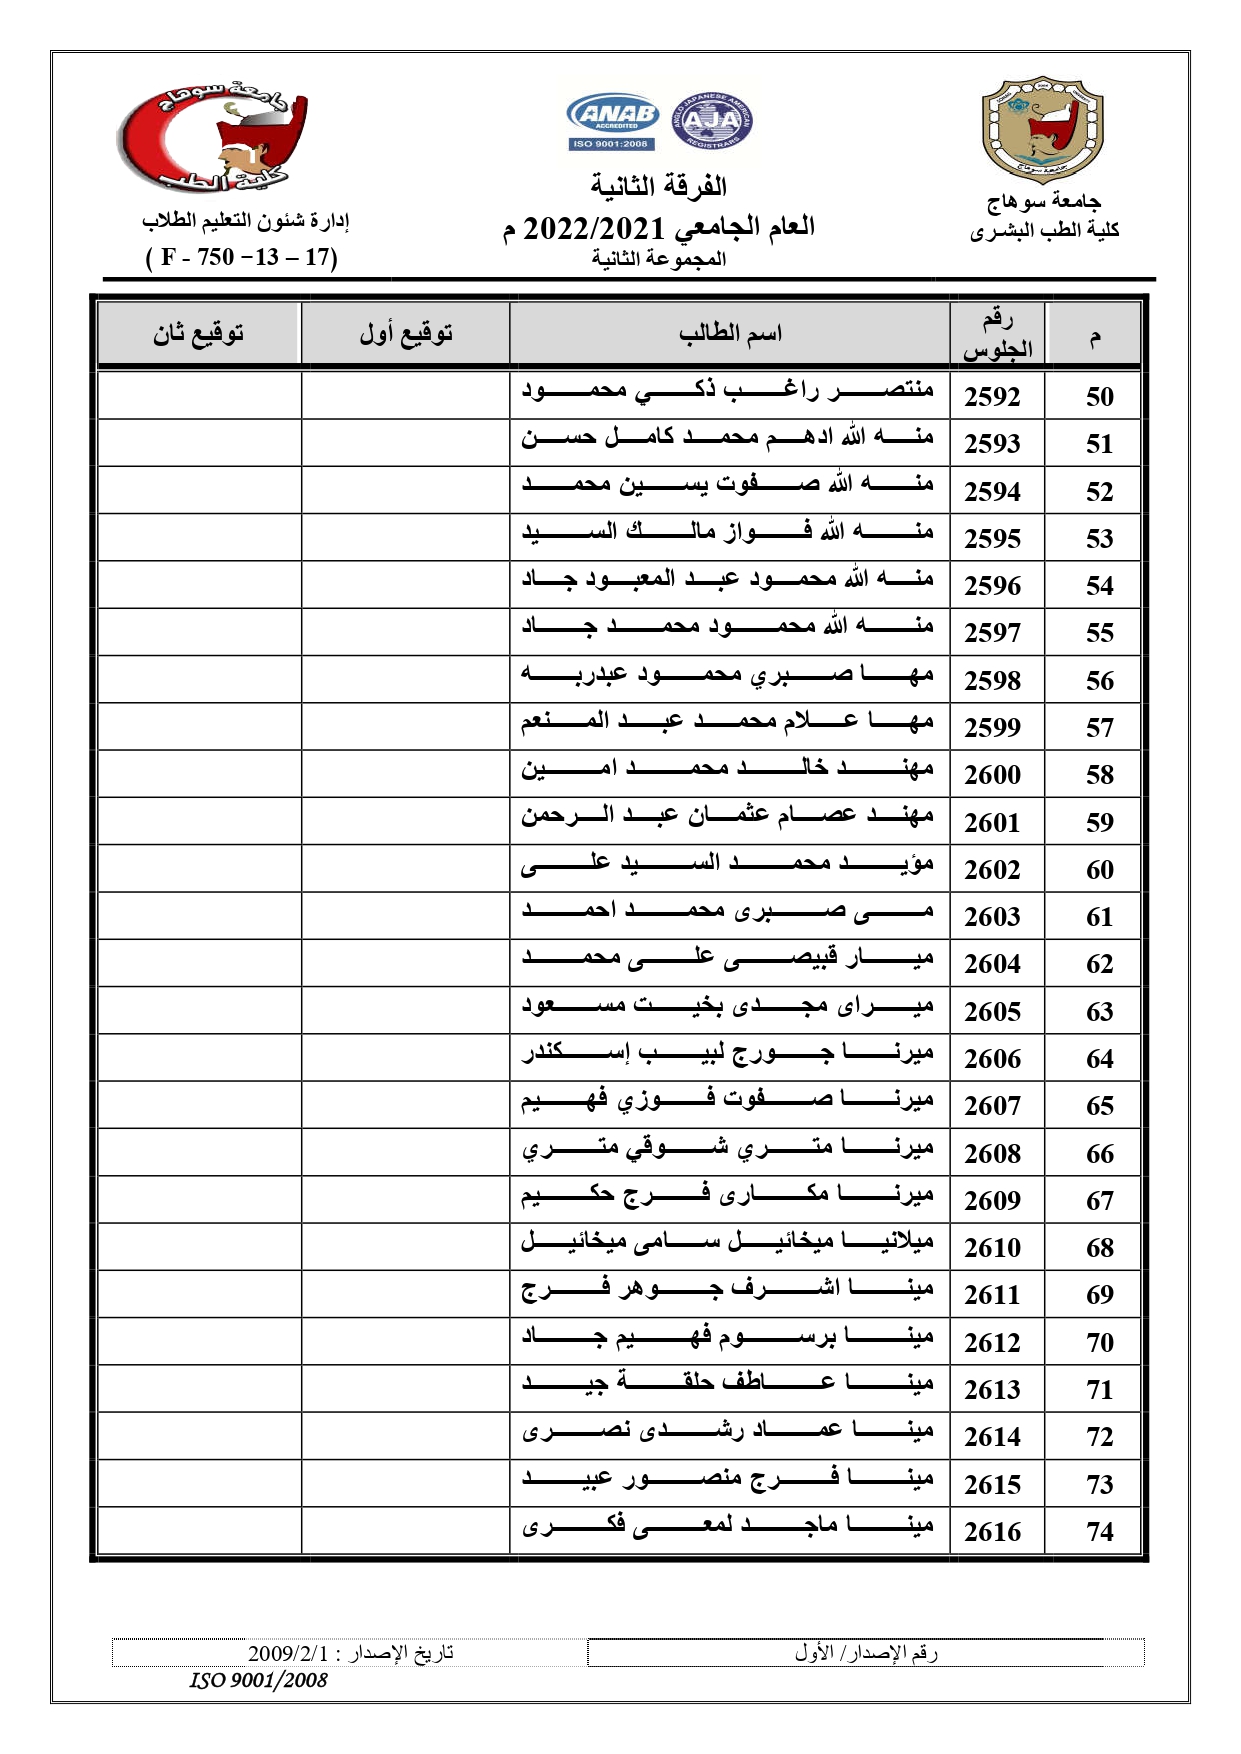 جامعة سوهاج
كلية الطب
ANAB
ACCREDITED
ISO 9001:2008
ANGLO JAPANESE AMERICAN
AJA
REGISTRARS
جامعة سوهاج
جامعة سوهاج
كلية الطب البشرى
الفرقة الثانية
العام الجامعي 2022/2021 م
المجموعة الثانية
إدارة شئون التعليم الطلاب
( F - 750 –13 – 17)
م رقم الجلوس اسم الطالب توقيع أول توقيع ثان
50 2592 منتصر راغب ذكي محمود
51 2593 منه الله ادهم محمد كامل حسن
52 2594 منه الله صفوت يسين محمد
53 2595 منه الله فواز مالك السيد
54 2596 منه الله محمود عبد المعبود جاد
55 2597 منه الله محمود محمد جاد
56 2598 مها صبري محمود عبدربه
57 2599 مها علام محمد عبد المنعم
58 2600 مهند خالد محمد امين
59 2601 مهند عصام عثمان عبد الرحمن
60 2602 مؤيد محمد السيد على
61 2603 مى صبرى محمد احمد
62 2604 ميار قبيصى على محمد
63 2605 ميراى مجدى بخيت مسعود
64 2606 ميرنا جورج لبيب إسكندر
65 2607 ميرنا صفوت فوزي فهيم
66 2608 ميرنا متري شوقي متري
67 2609 ميرنا مكارى فرج حكيم
68 2610 ميلانيا ميخائيل سامى ميخائيل
69 2611 مينا اشرف جوهر فرج
70 2612 مينا برسوم فهيم جاد
71 2613 مينا عاطف حلقة جيد
72 2614 مينا عماد رشدى نصرى
73 2615 مينا فرج منصور عبيد
74 2616 مينا ماجد لمعى فكرى
رقم الإصدار/ الأول تاريخ الإصدار : 2009/2/1
ISO 9001/2008